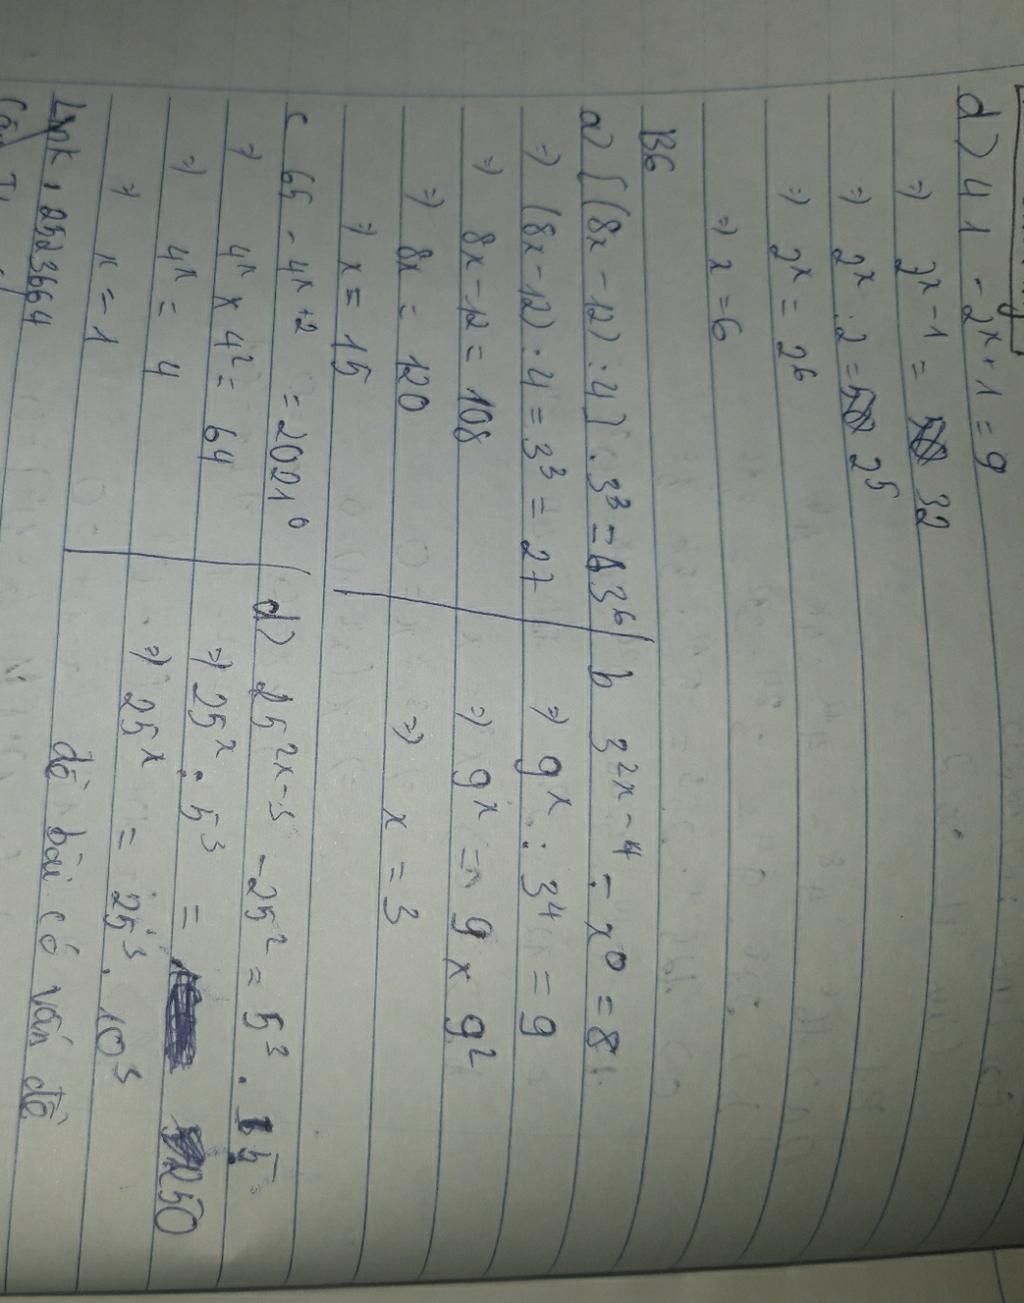 d) 41 - 2^x+1 = 9
=> 2^x-1 = 32
=> 2^x . 2 = 2^5
=> 2^x = 2^6
=> x = 6
B6
a) [(8x - 12) : 4] . 3^3 = 3^6
=> (8x - 12) : 4 = 3^3 = 27
=> 8x - 12 = 108
=> 8x = 120
=> x = 15
b 3^2x-4 - x^0 = 8
=> 9^x : 3^4 = 9
=> 9^x = 9 x 9^2
=> x = 3
c 65 - 4^x+2 = 2021^0
=> 4^x x 4^2 = 64
=> 4^x = 4
=> x = 1
d) 25^2x-3 - 25^2 = 5^3 . 5
=> 25^x : 5^3 = 1250
=> 25^x = 25^3 . 10^3
đề bài có vấn đề
Link : 2523664